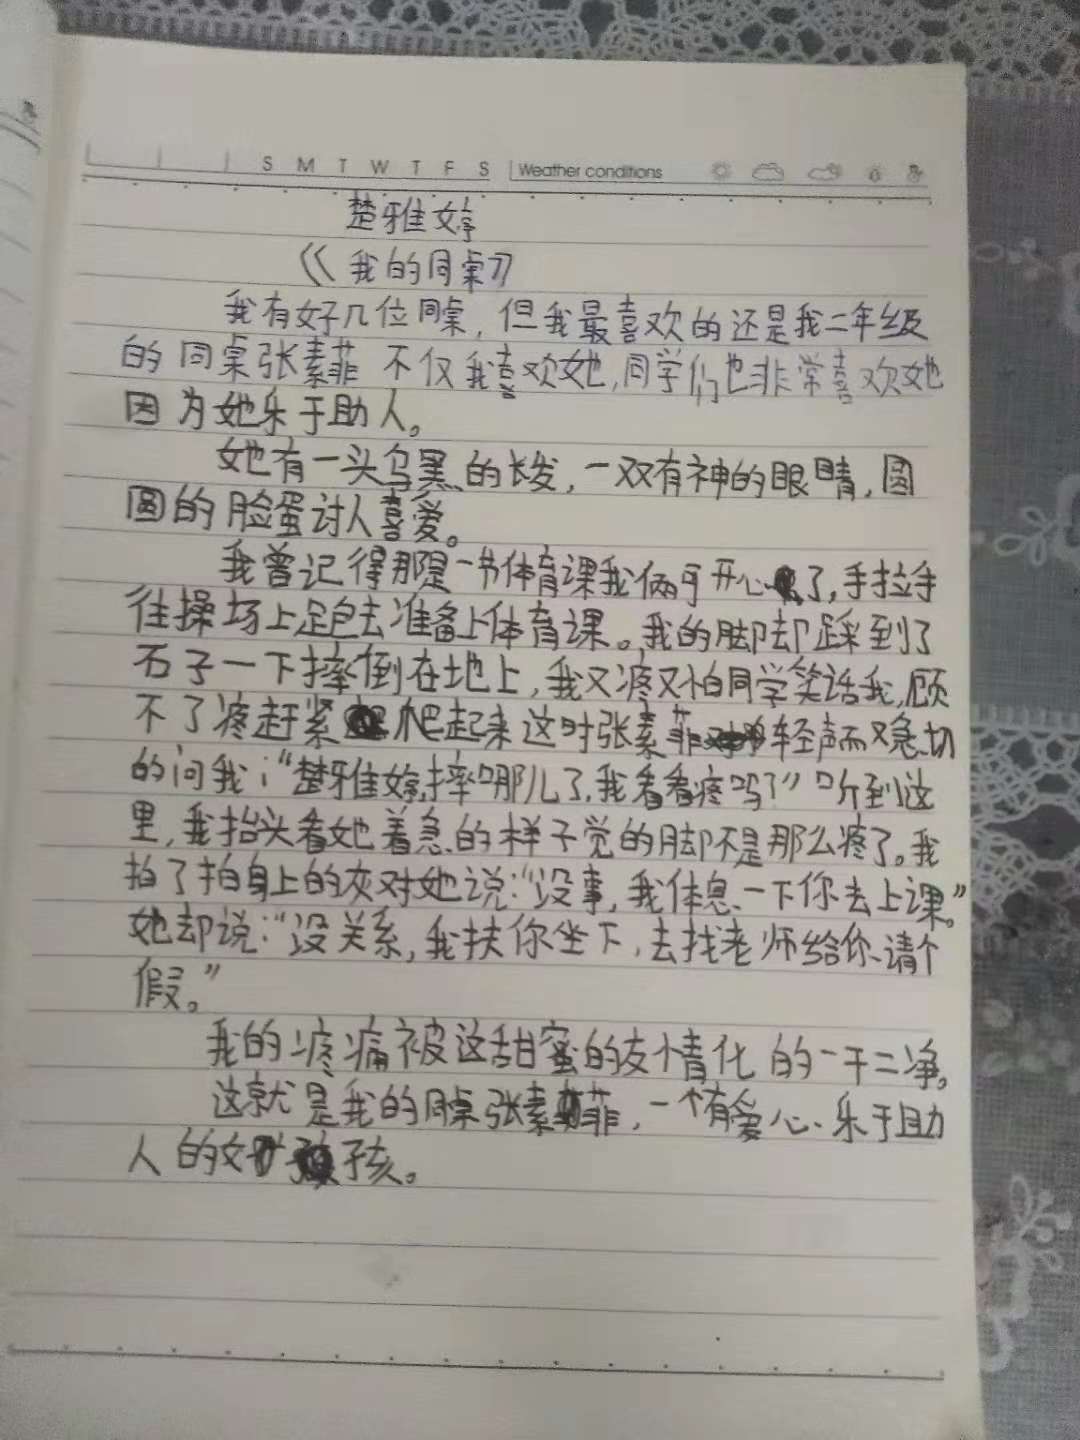 S M T W T F S Weather conditions
楚雅婷
《我的同桌》
我有好几位同桌，但我最喜欢的还是我二年级
的同桌张素菲 不仅我喜欢她，同学们也非常喜欢她
因为她乐于助人。
她有一头乌黑的长发，一双有神的眼睛，圆
圆的脸蛋讨人喜爱。
我曾记得那是一节体育课我俩可开心了，手拉手
往操场上跑去准备上体育课。我的脚却踩到了
石子一下摔倒在地上，我又疼又怕同学笑话我，顾
不了疼赶紧爬起来这时张素菲轻声而又急切
的问我：“楚雅婷，摔哪儿了，我看看疼吗？”听到这
里，我抬头看她着急的样子觉的脚不是那么疼了。我
拍了拍身上的灰对她说：“没事，我休息一下你去上课。”
她却说：“没关系，我扶你坐下，去找老师给你请个
假。”
我的疼痛被这甜蜜的友情化的一干二净。
这就是我的同桌张素菲，一个有爱心、乐于助
人的女孩。